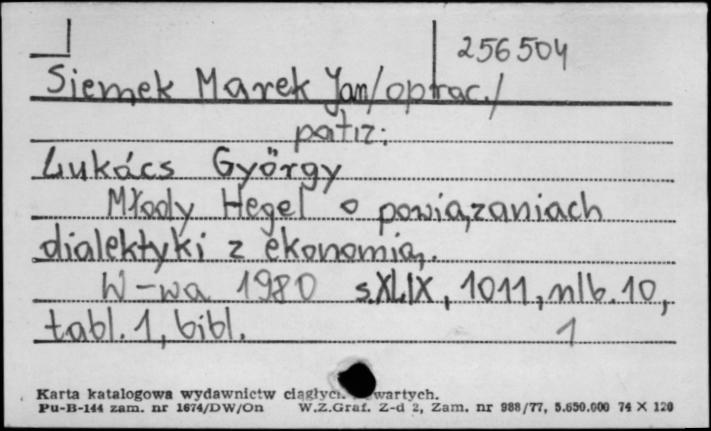 256504
Siemek Marek Jan/oprac./
patrz:
Lukács György
Młody Hegel o powiązaniach
dialektyki z ekonomią.
W-wa 1980 s.XLIX, 1011, nlb. 10,
tabl. 1, bibl. 1
Karta katalogowa wydawnictw
Pu-B-144 zam. nr 1674/DW/On W.Z.Graf. Z-d 2, Zam. nr 988/77, 5.650.000 74 X 120